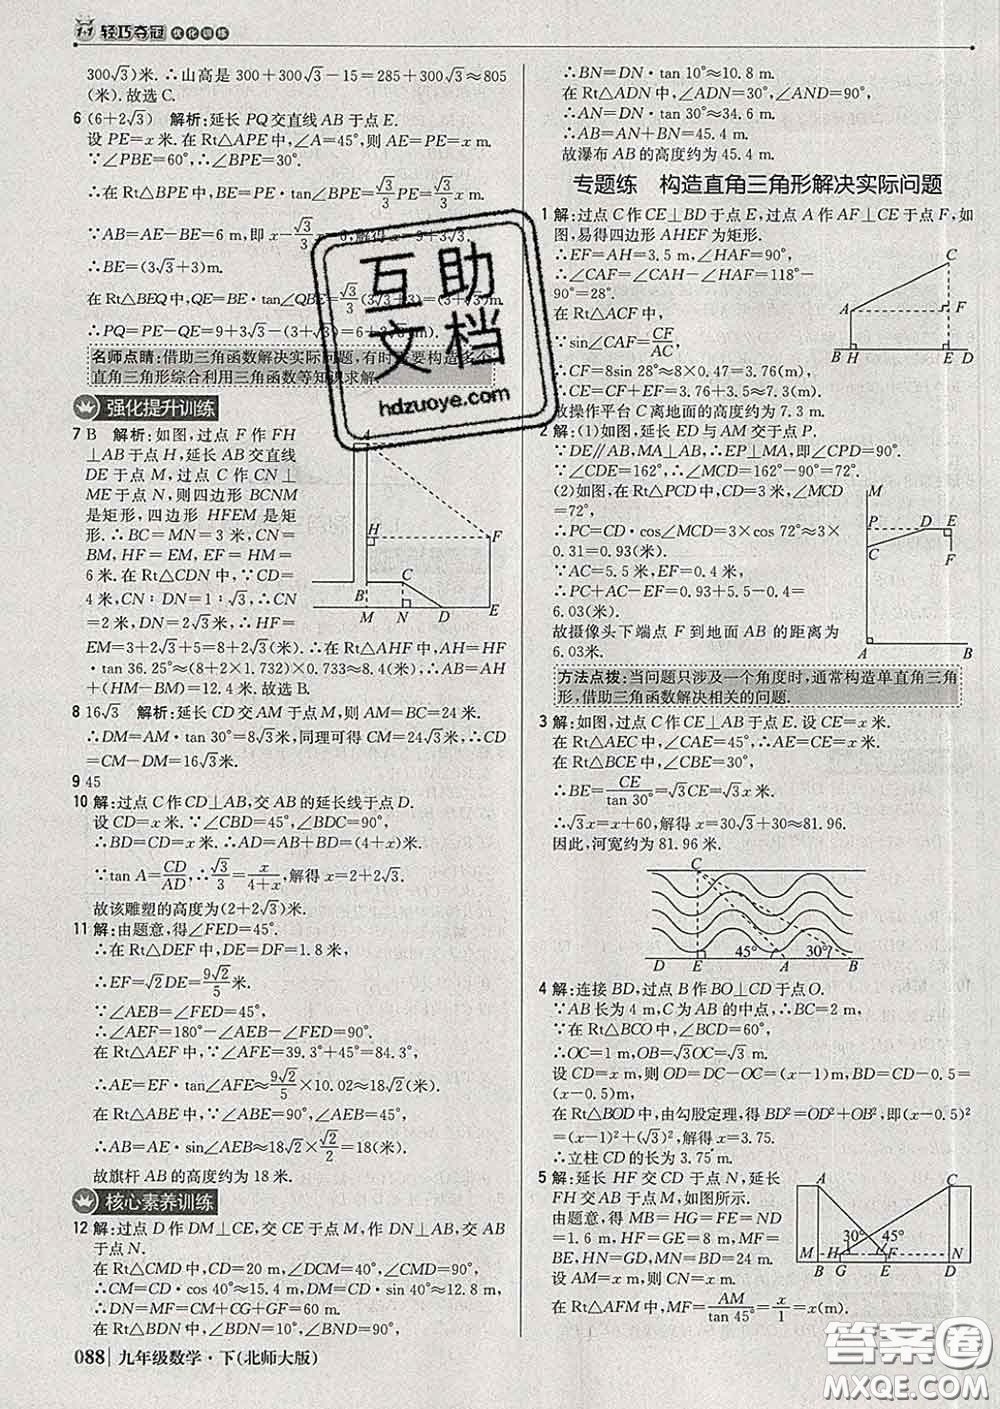 1+1 轻巧夺冠 优化训练
300√3)米.∴山高是300+300√3-15=285+300√3≈805
(米).故选C.
6 (6+2√3) 解析:延长PQ交直线AB于点E.
设PE=x米.在Rt△APE中,∠A=45°,则AE=PE=x米.
∵∠PBE=60°,∴∠BPE=30°.
∴在Rt△BPE中,BE=PE·tan∠BPE=√3/3 x米.
∵AB=AE-BE=6 m,即x-√3/3
∴BE=(3√3+3)m.
在Rt△BEQ中,QE=BE·tan∠QBE=√3/3(3√3+3)=
∴PQ=PE-QE=9+3√3-(3+√3)=
名师点睛:借助三角函数解决实际问题,有时需要构造多个
直角三角形综合利用三角函数等知识求解.
强化提升训练
7 B 解析:如图,过点F作FH
⊥AB于点H,延长AB交直线
DE于点M,过点C作CN⊥
ME于点N,则四边形BCNM
是矩形,四边形HFEM是矩
形.∴BC=MN=3米,CN=
BM,HF=EM,HM=EF=
6米.在Rt△CDN中,∵CD=
4米,CN∶DN=1∶√3,∴CN
=2米,DN=2√3米,∴HF=
EM=3+2√3+5=(8+2√3)米.∴在Rt△AHF中,AH=HF
·tan 36.25°≈(8+2×1.732)×0.733≈8.4(米).∴AB=AH
+(HM-BM)=12.4米.故选B.
A
H
F
B
C
M
N
D
E
8 16√3 解析:延长CD交AM于点M,则AM=BC=24米.
∴DM=AM·tan 30°=8√3米,同理可得CM=24√3米,∴CD
=CM-DM=16√3米.
9 45
10 解:过点C作CD⊥AB,交AB的延长线于点D.
设CD=x米.∵∠CBD=45°,∠BDC=90°,
∴BD=CD=x米.∴AD=AB+BD=(4+x)米.
∵tan A=CD/AD,∴√3/3=x/(4+x),解得x=2+2√3.
故该雕塑的高度为(2+2√3)米.
11 解:由题意,得∠FED=45°.
∴在Rt△DEF中,DE=DF=1.8米,
∴EF=√2DE=9√2/5米.
∵∠AEB=∠FED=45°,
∴∠AEF=180°-∠AEB-∠FED=90°.
在Rt△AEF中,∵∠AFE=39.3°+45°=84.3°,
∴AE=EF·tan∠AFE≈9√2/5×10.02≈18√2(米).
在Rt△ABE中,∵∠ABE=90°,∠AEB=45°,
∴AB=AE·sin∠AEB≈18√2×√2/2=18(米).
故旗杆AB的高度约为18米.
核心素养训练
12 解:过点D作DM⊥CE,交CE于点M,作DN⊥AB,交AB
于点N.
在Rt△CMD中,CD=20 m,∠DCM=40°,∠CMD=90°,
∴CM=CD·cos 40°≈15.4 m,DM=CD·sin 40°≈12.8 m,
∴DN=MF=CM+CG+GF=60 m.
在Rt△BDN中,∠BDN=10°,∠BND=90°,
088 九年级数学·下(北师大版)
∴BN=DN·tan 10°≈10.8 m.
在Rt△ADN中,∠ADN=30°,∠AND=90°,
∴AN=DN·tan 30°≈34.6 m.
∴AB=AN+BN=45.4 m.
故瀑布AB的高度约为45.4 m.
专题练 构造直角三角形解决实际问题
1 解:过点C作CE⊥BD于点E,过点A作AF⊥CE于点F,如
图,易得四边形AHEF为矩形.
∴EF=AH=3.5 m,∠HAF=90°,
∴∠CAF=∠CAH-∠HAF=118°-
90°=28°.
在Rt△ACF中,
∵sin∠CAF=CF/AC,
∴CF=8sin 28°≈8×0.47=3.76(m).
∴CE=CF+EF=3.76+3.5≈7.3(m).
故操作平台C离地面的高度约为7.3 m.
C
A
F
B H
E D
2 解:(1)如图,延长ED与AM交于点P.
∵DE∥AB,MA⊥AB,∴EP⊥MA,即∠CPD=90°.
∵∠CDE=162°,∴∠MCD=162°-90°=72°.
(2)如图,在Rt△PCD中,CD=3米,∠MCD
=72°,
∴PC=CD·cos∠MCD=3×cos 72°≈3×
0.31=0.93(米).
∵AC=5.5米,EF=0.4米,
∴PC+AC-EF=0.93+5.5-0.4=
6.03(米).
故摄像头下端点F到地面AB的距离为
6.03米.
M
P
D E
C
F
A
B
方法点拨:当问题只涉及一个角度时,通常构造单直角三角
形,借助三角函数解决相关的问题.
3 解:如图,过点C作CE⊥AB于点E.设CE=x米.
在Rt△AEC中,∠CAE=45°,∴AE=CE=x米.
在Rt△BCE中,∠CBE=30°,
∴BE=CE/tan 30°=√3CE=√3x米.
∴√3x=x+60,解得x=30√3+30≈81.96.
因此,河宽约为81.96米.
C
45°
30°
D
E
A
B
4 解:连接BD,过点B作BO⊥CD于点O.
∵AB长为4 m,C为AB的中点,∴BC=2 m,
∵在Rt△BCO中,∠BCD=60°,
∴OC=1 m,OB=√3OC=√3 m.
设CD=x m,则OD=DC-OC=(x-1)m,BD=CD-0.5=
(x-0.5)m.
在Rt△BOD中,由勾股定理,得BD²=OD²+OB²,即(x-0.5)²
=(x-1)²+(√3)²,解得x=3.75.
∴立柱CD的长为3.75 m.
5 解:延长HF交CD于点N,延长
FH交AB于点M,如图所示.
由题意,得MB=HG=FE=ND
=1.6 m,HF=GE=8 m,MF=
BE,HN=GD,MN=BD=24 m.
设AM=x m,则CN=x m.
在Rt△AFM中,MF=AM/tan 45°=x/1=x(m).
A
C
30°
45°
M
H
F
N
B
G
E
D
互助
文档
hdzuoye.com
答案圈
MXQE.COM